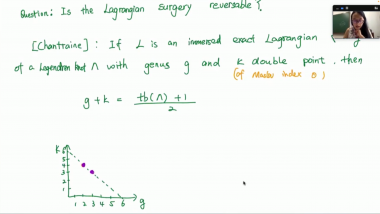 Question: Is the Lagrangian surgery reversable {
[Chantraine] : If L is an immersed exact Lagrangian { g
of a Legendrian knot Λ with genus g and k double point. then
(of Maslov index 0)
g + k = tb(Λ) + 1
2
K
6
5
4
3
2
1
1 2 3 4 5 6 g